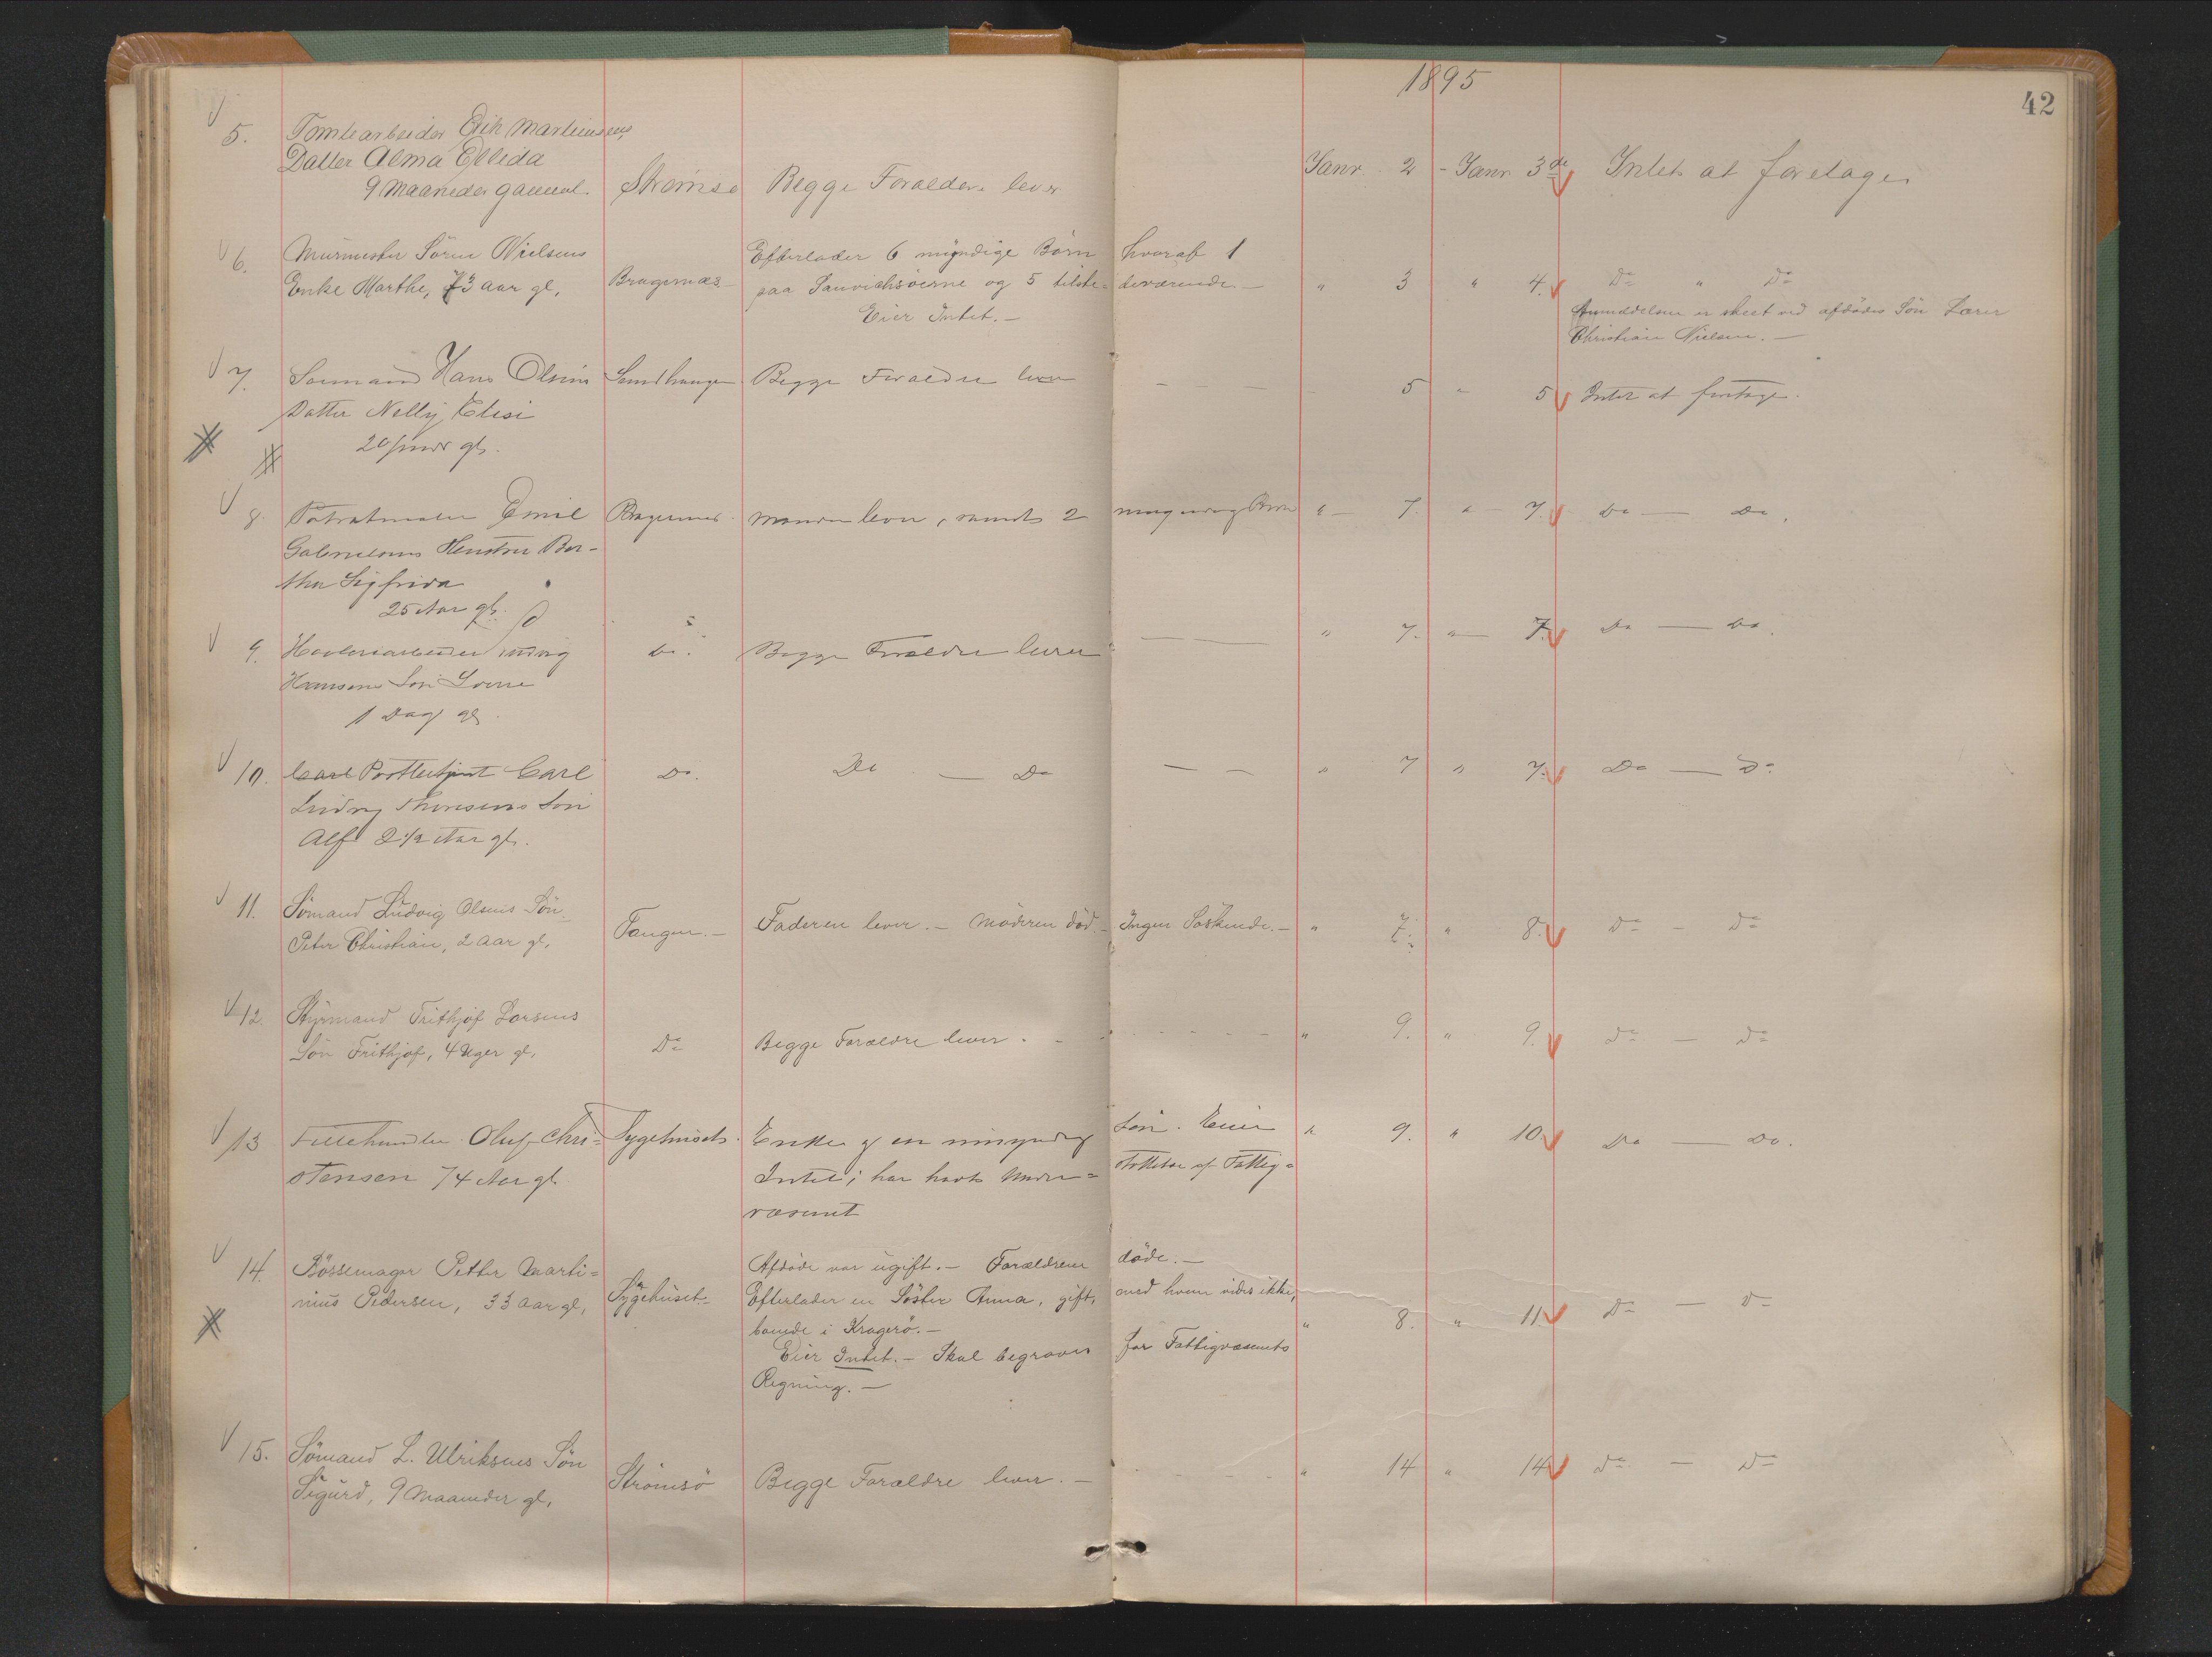 1895
42
5. Tomtearbeider Erik Martinsens
Datter Alma Ellida
9 Maaneder gammel. Strømsø Begge Forældre lever Janr 2 - Janr 3de Intet at foretage
6. Murmester Sören Nielsens
Enke Marthe, 73 aar gl. Bragernæs Efterlader 6 myndige Börn hvoraf 1
paa Sandvichsöerne og 5 tilste= deværende. — " 3 " 4. Do " Do
Eier Intet. —
Anmeldelsen er skeet ved afdödes Sön Lærer
Christian Nielsen. —
7. Sömand Hans Olsens Begge Forældre lever — — — 5 " 5 Intet at foretage.
Datter Nelly Elise
gl.
8. Emil Bragernæs Manden lever, samt 2 umyndige Börn " — 7. " — 7. Do — Do.
Gabrielsens Hustru Ber-
tha Sigfrida
25 Aar gl.
9. Do. Begge Forældre lever — — " 7. " — 7. Do — Do.
Hansens Sön
1 Dag gl.
10. Carl Carl Do. Do — Do — — " 7 " 7. Do — Do
Ludvig Sön
Alf 2 1/2 Aar gl.
11. Sömand Ludvig Olsens Sön
Peter Christian, 2 aar gl. Tangen. — Faderen lever. — Moderen död. — Ingen Söskende. — " 7. " 8. Do - Do
12. Styrmand Frithjof Larsens
Sön Frithjof, 4 Uger gl. Do Begge Forældre lever. - - - - - " 9. " 9. Do — Do
13 Fillehandler Oluf Chri= Sygehuset. Enke og en umyndig Sön. Eier " 9. " 10. Do — Do.
stensen 74 Aar gl. Intet; har havt Under= stöttelse af Fattig=
væsenet
14. Bössemager Petter Marti= Afdöde var ugift. — Forældrene döde. —
nius Pedersen, 33 aar gl. Sygehuset. Efterlader en Söster Anna, gift, med hvem vides ikke,
boende i Kragerö. — " 8. " 11. Do — Do
Eier Intet. — Skal begraves for Fattigvæsenets
Regning. —
15. Sömand L. Ulriksens Sön
Sigurd, 9 Maaneder gl. Strömsö Begge Forældre lever. — - - - " 14 " 14 Do — Do